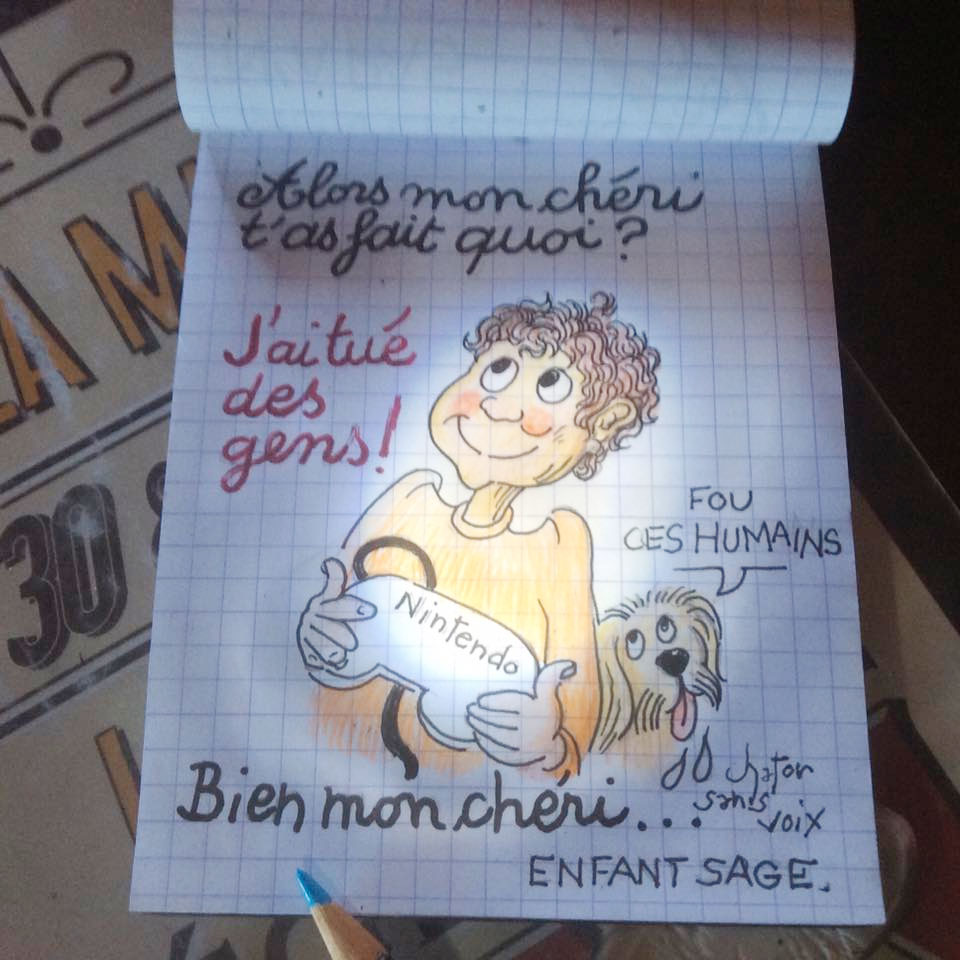 Alors mon chéri
t'as fait quoi ?
J'ai tué
des
gens!
FOU
CES HUMAINS
Nintendo
Bien mon chéri...
sans
voix
ENFANT SAGE.
LA M
30